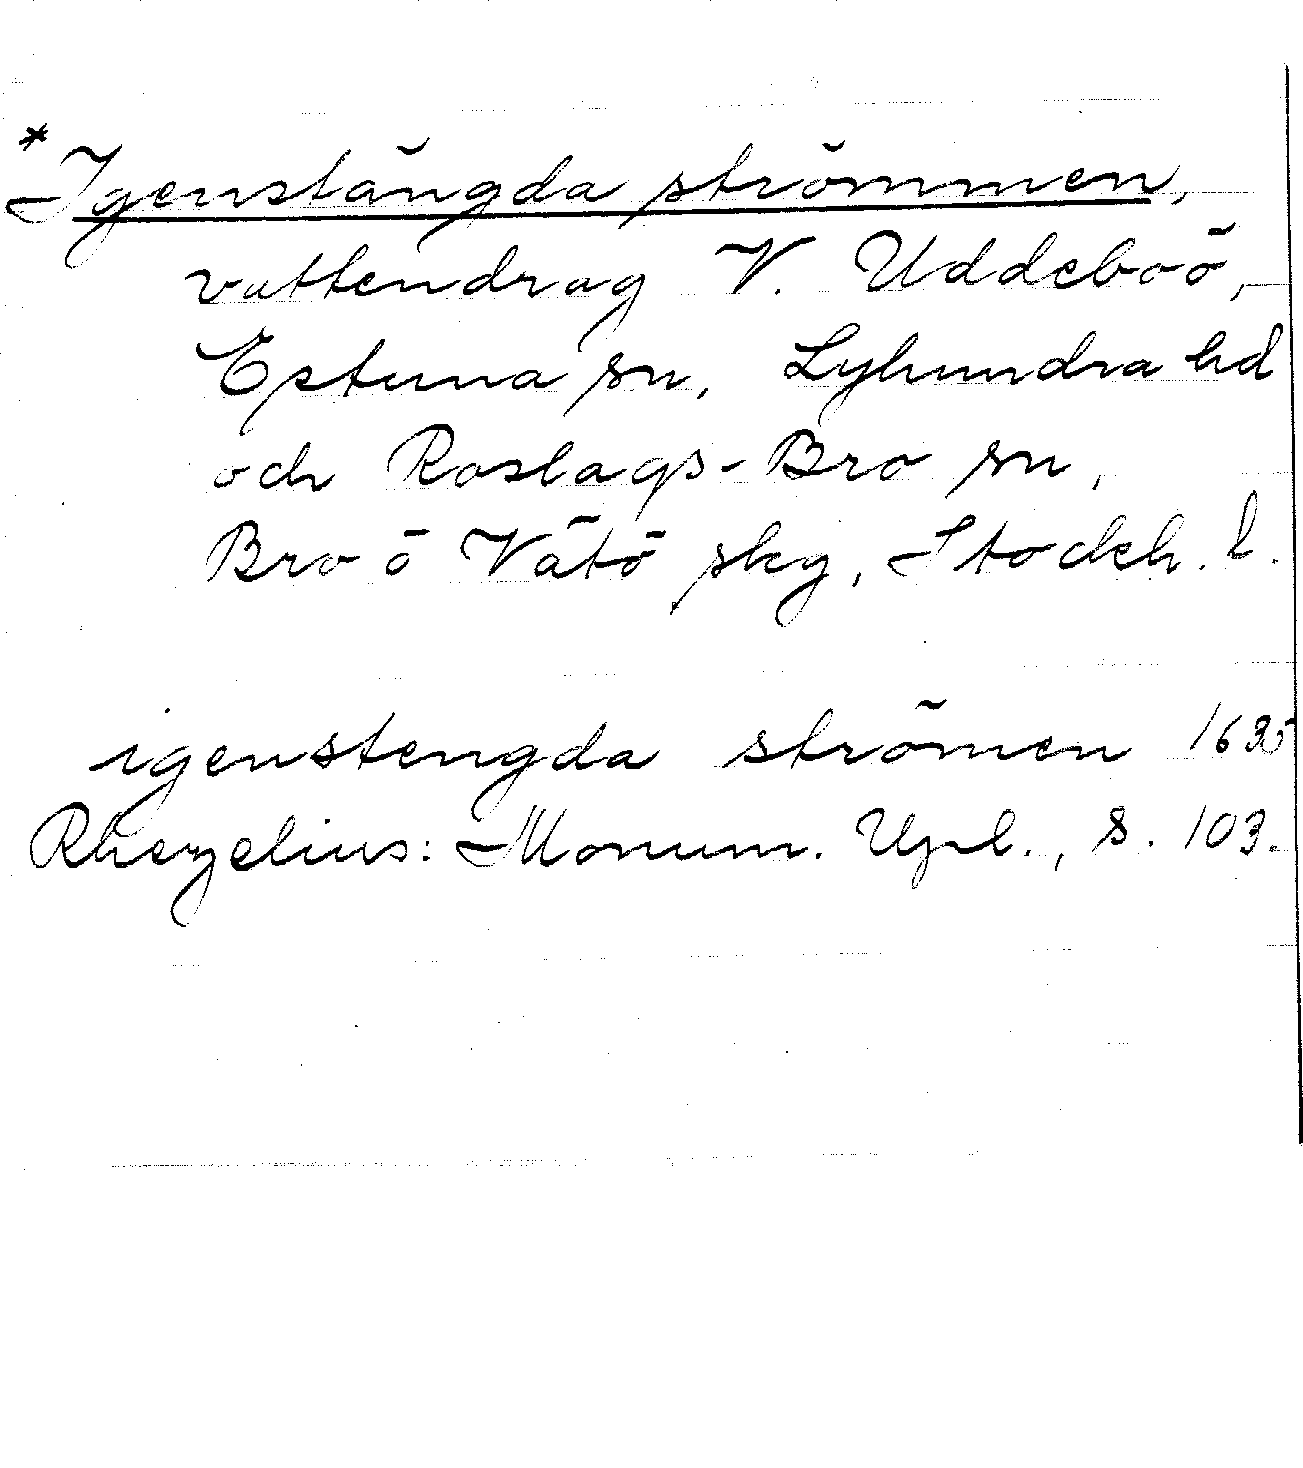 *Igenstängda strömmen,
vattendrag V. Uddeboö,
Estuna sn, Lyhundra hd
och Roslags-Bro sn,
Bro ö Vätö skg, Stockh. l.
igenstengda strömen 1635
Rhezelius: Monum. Upl., s. 103.